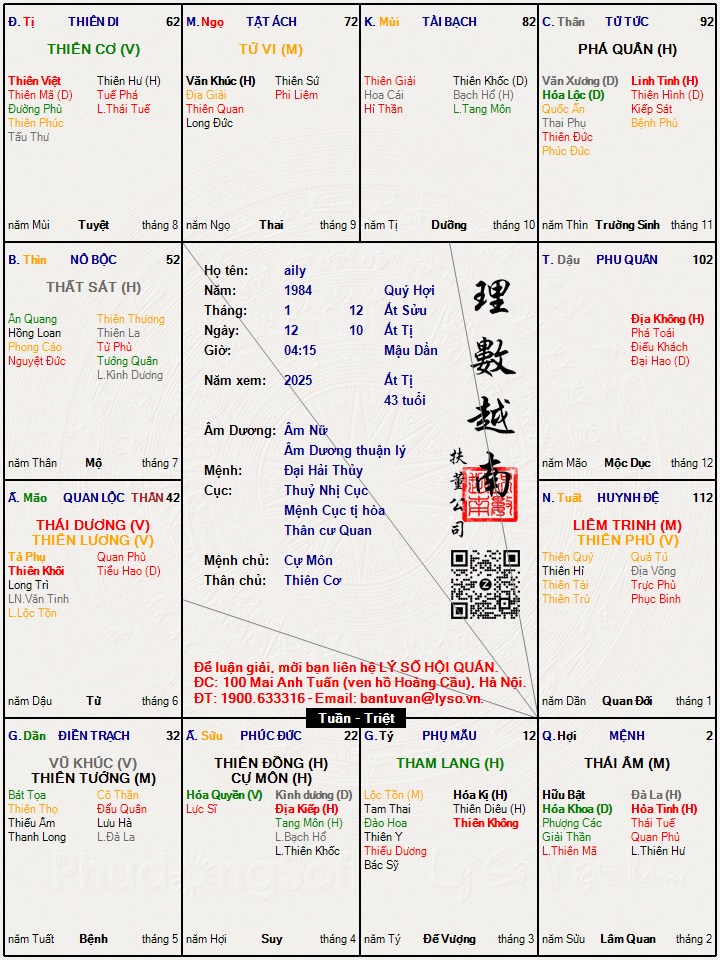 Đ. Tị THIÊN DI 62
THIÊN CƠ (V)
Thiên Việt Thiên Hư (H)
Thiên Mã (D) Tuế Phá
Đường Phù L.Thái Tuế
Thiên Phúc
Tấu Thư
năm Mùi Tuyệt tháng 8
M. Ngọ TẬT ÁCH 72
TỬ VI (M)
Văn Khúc (H) Thiên Sứ
Địa Giải Phi Liêm
Thiên Quan
Long Đức
năm Ngọ Thai tháng 9
K. Mùi TÀI BẠCH 82
Thiên Giải Thiên Khốc (D)
Hoa Cái Bạch Hổ (H)
Hỉ Thần L.Tang Môn
năm Tị Dưỡng tháng 10
C. Thân TỬ TỨC 92
PHÁ QUÂN (H)
Văn Xương (D) Linh Tinh (H)
Hóa Lộc (D) Thiên Hình (D)
Quốc Ấn Kiếp Sát
Thai Phụ Bệnh Phù
Thiên Đức
Phúc Đức
năm Thìn Trường Sinh tháng 11
B. Thìn NÔ BỘC 52
THẤT SÁT (H)
Ân Quang Thiên Thương
Hồng Loan Thiên La
Phong Cáo Tử Phù
Nguyệt Đức Tướng Quân
L.Kình Dương
năm Thân Mộ tháng 7
Họ tên: aily
Năm: 1984 Quý Hợi
Tháng: 1 12 Ất Sửu
Ngày: 12 10 Ất Tị
Giờ: 04:15 Mậu Dần
Năm xem: 2025 Ất Tị
43 tuổi
Âm Dương: Âm Nữ
Âm Dương thuận lý
Mệnh: Đại Hải Thủy
Cục: Thuỷ Nhị Cục
Mệnh Cục tị hòa
Thân cư Quan
Mệnh chủ: Cự Môn
Thân chủ: Thiên Cơ
理數越南
扶董公司
T. Dậu PHU QUÂN 102
Địa Không (H)
Phá Toái
Điếu Khách
Đại Hao (D)
năm Mão Mộc Dục tháng 12
Ấ. Mão QUAN LỘC THÂN 42
THÁI DƯƠNG (V)
THIÊN LƯƠNG (V)
Tả Phụ Quan Phù
Thiên Khôi Tiểu Hao (D)
Long Trì
LN.Văn Tinh
L.Lộc Tồn
năm Dậu Tử tháng 6
N. Tuất HUYNH ĐỆ 112
LIÊM TRINH (M)
THIÊN PHỦ (V)
Thiên Quý Quả Tú
Thiên Hỉ Địa Võng
Thiên Tài Trực Phù
Thiên Trù Phục Binh
năm Dần Quan Đới tháng 1
Để luận giải, mời bạn liên hệ LÝ SỐ HỘI QUÁN.
ĐC: 100 Mai Anh Tuấn (ven hồ Hoàng Cầu), Hà Nội.
ĐT: 1900.633316 - Email: bantuvan@lyso.vn.
Tuần - Triệt
G. Dần ĐIỀN TRẠCH 32
VŨ KHÚC (V)
THIÊN TƯỚNG (M)
Bát Tọa Cô Thần
Thiên Thọ Đẩu Quân
Thiếu Âm Lưu Hà
Thanh Long L.Đà La
năm Tuất Bệnh tháng 5
Ấ. Sửu PHÚC ĐỨC 22
THIÊN ĐỒNG (H)
CỰ MÔN (H)
Hóa Quyền (V) Kình dương (D)
Lực Sĩ Địa Kiếp (H)
Tang Môn (H)
L.Bạch Hổ
L.Thiên Khốc
năm Hợi Suy tháng 4
G. Tý PHỤ MẪU 12
THAM LANG (H)
Lộc Tồn (M) Hóa Kị (H)
Tam Thai Thiên Diêu (H)
Đào Hoa Thiên Không
Thiên Y
Thiếu Dương
Bác Sỹ
năm Tý Đế Vượng tháng 3
Q. Hợi MỆNH 2
THÁI ÂM (M)
Hữu Bật Đà La (H)
Hóa Khoa (D) Hỏa Tinh (H)
Phượng Các Thái Tuế
Giải Thần Quan Phủ
L.Thiên Mã L.Thiên Hư
năm Sửu Lâm Quan tháng 2